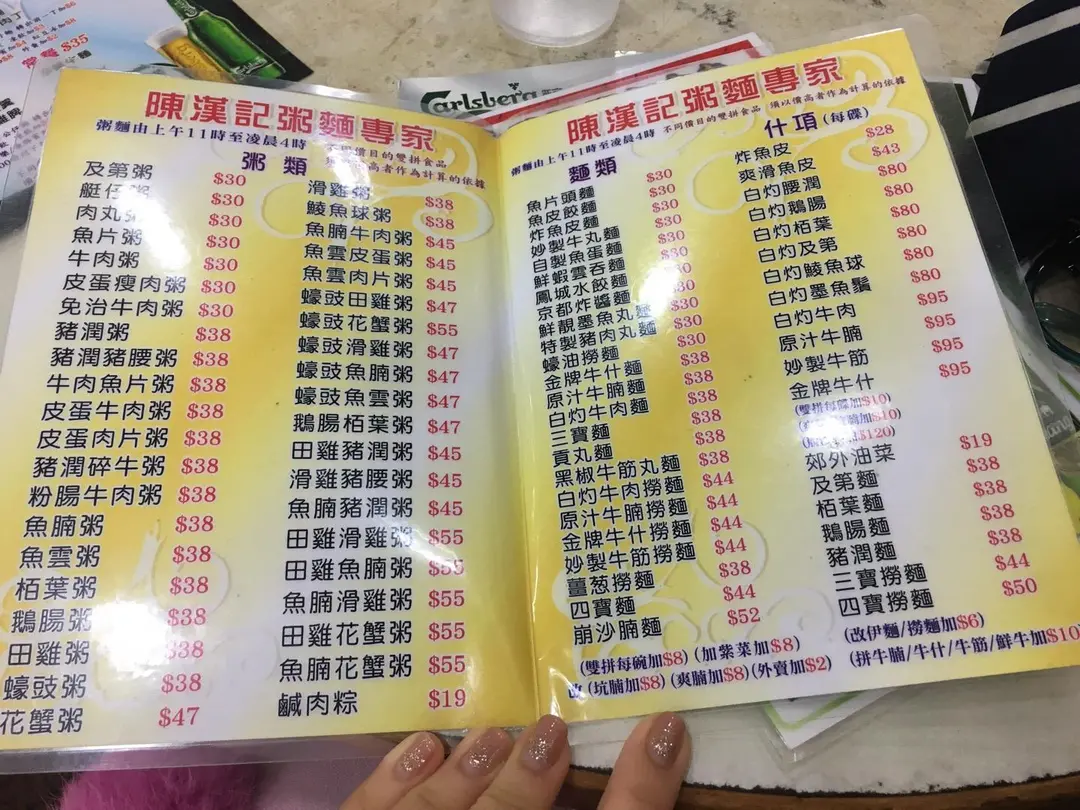 Carlsberg
$35
陳漢記粥麵專家
粥麵由上午11時至凌晨4時 不同價目的雙拼食品
須以價高者作為計算的依據
粥類
及第粥 $30
艇仔粥 $30
肉丸粥 $30
魚片粥 $30
牛肉粥 $30
皮蛋瘦肉粥 $30
免治牛肉粥 $30
豬潤粥 $38
豬潤豬腰粥 $38
牛肉魚片粥 $38
皮蛋牛肉粥 $38
皮蛋肉片粥 $38
豬潤碎牛粥 $38
粉腸牛肉粥 $38
魚腩粥 $38
魚雲粥 $38
栢葉粥 $38
鵝腸粥 $38
田雞粥 $38
蠔豉粥 $38
花蟹粥 $47
滑雞粥 $38
鯪魚球粥 $38
魚腩牛肉粥 $45
魚雲皮蛋粥 $45
魚雲肉片粥 $45
蠔豉田雞粥 $47
蠔豉花蟹粥 $55
蠔豉滑雞粥 $47
蠔豉魚腩粥 $47
蠔豉魚雲粥 $47
鵝腸栢葉粥 $47
田雞豬潤粥 $45
滑雞豬腰粥 $45
魚腩豬潤粥 $45
田雞滑雞粥 $55
田雞魚腩粥 $55
魚腩滑雞粥 $55
田雞花蟹粥 $55
魚腩花蟹粥 $55
鹹肉粽 $19
陳漢記粥麵專家
粥麵由上午11時至凌晨4時 不同價目的雙拼食品 須以價高者作為計算的依據
麵類
魚片頭麵 $30
魚皮餃麵 $30
炸魚皮麵 $30
妙製牛丸麵 $30
自製魚蛋麵 $30
鮮蝦雲吞麵 $30
鳳城水餃麵 $30
京都炸醬麵 $30
鮮靚墨魚丸麵 $30
特製豬肉丸麵 $30
蠔油撈麵 $30
金牌牛什麵 $38
原汁牛腩麵 $38
白灼牛肉麵 $38
三寶麵 $38
貢丸麵 $38
黑椒牛筋丸麵 $38
白灼牛肉撈麵 $44
原汁牛腩撈麵 $44
金牌牛什撈麵 $44
妙製牛筋撈麵 $44
薑葱撈麵 $38
四寶麵 $44
崩沙腩麵 $52
什項(每碟)
炸魚皮 $28
爽滑魚皮 $43
白灼腰潤 $80
白灼鵝腸 $80
白灼栢葉 $80
白灼及第 $80
白灼鯪魚球 $80
白灼墨魚鬚 $80
白灼牛肉 $95
原汁牛腩 $95
妙製牛筋 $95
金牌牛什 $95
(雙拼每碟加$10)
加$10)
$120)
郊外油菜 $19
及第麵 $38
栢葉麵 $38
鵝腸麵 $38
豬潤麵 $38
三寶撈麵 $44
四寶撈麵 $50
(雙拼每碗加$8) (加紫菜加$8) (改伊麵/撈麵加$6)
改(坑腩加$8) (爽腩加$8) (外賣加$2) (拼牛腩/牛什/牛筋/鮮牛加$10